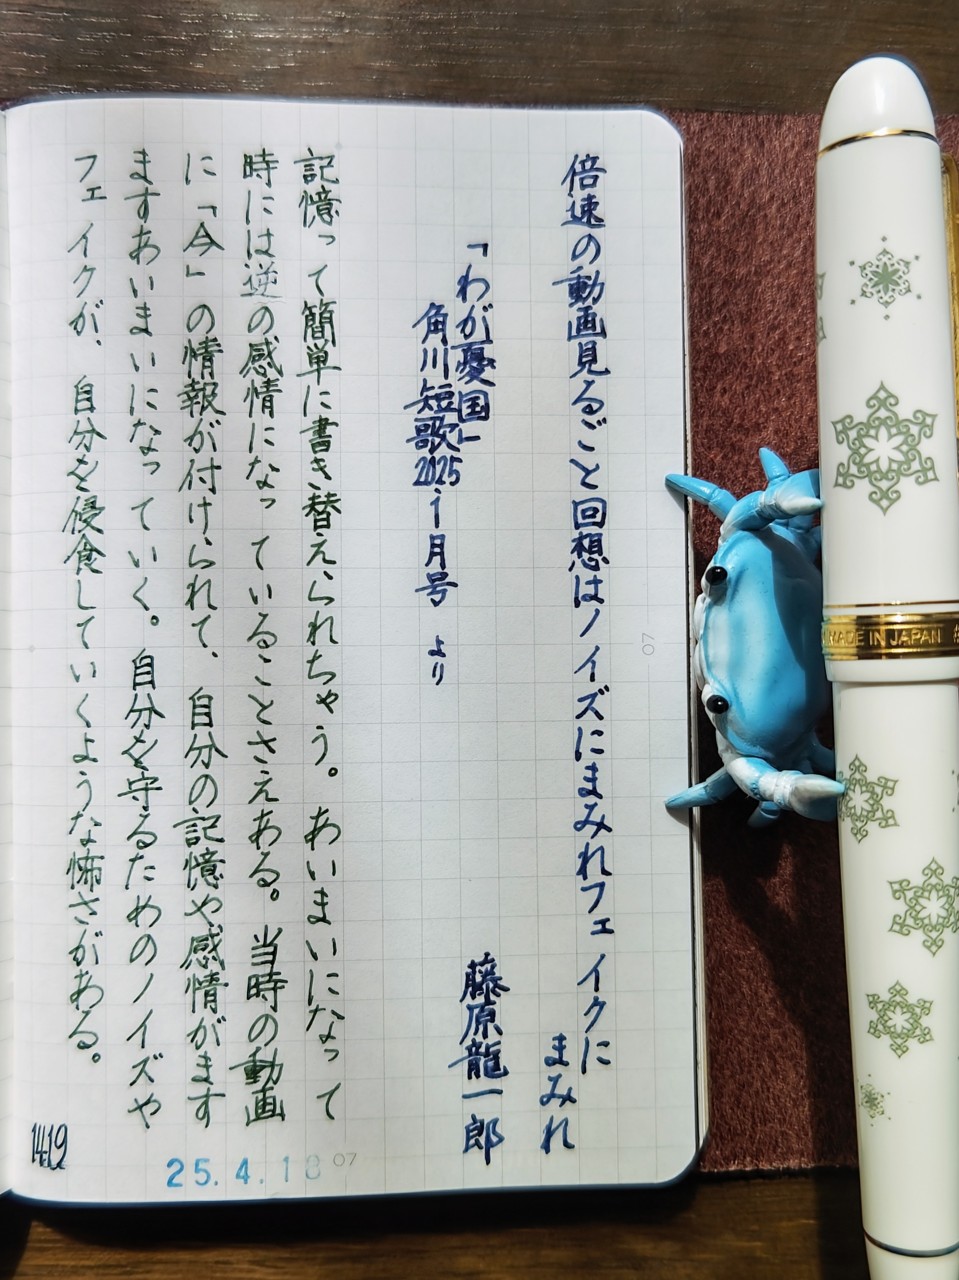 倍速の動画見るごと回想はノイズにまみれフェイクに
まみれ
「わが憂国」
角川短歌2025 1月号 より
藤原龍一郎
記憶って簡単に書き替えられちゃう。あいまいになって
時には逆の感情になっていることさえある。当時の動画
に「今」の情報が付けられて、自分の記憶や感情がます
ますあいまいになっていく。自分を守るためのノイズや
フェイクが、自分を侵食していくような怖さがある。
1419
25.4.18
07
07
MADE IN JAPAN